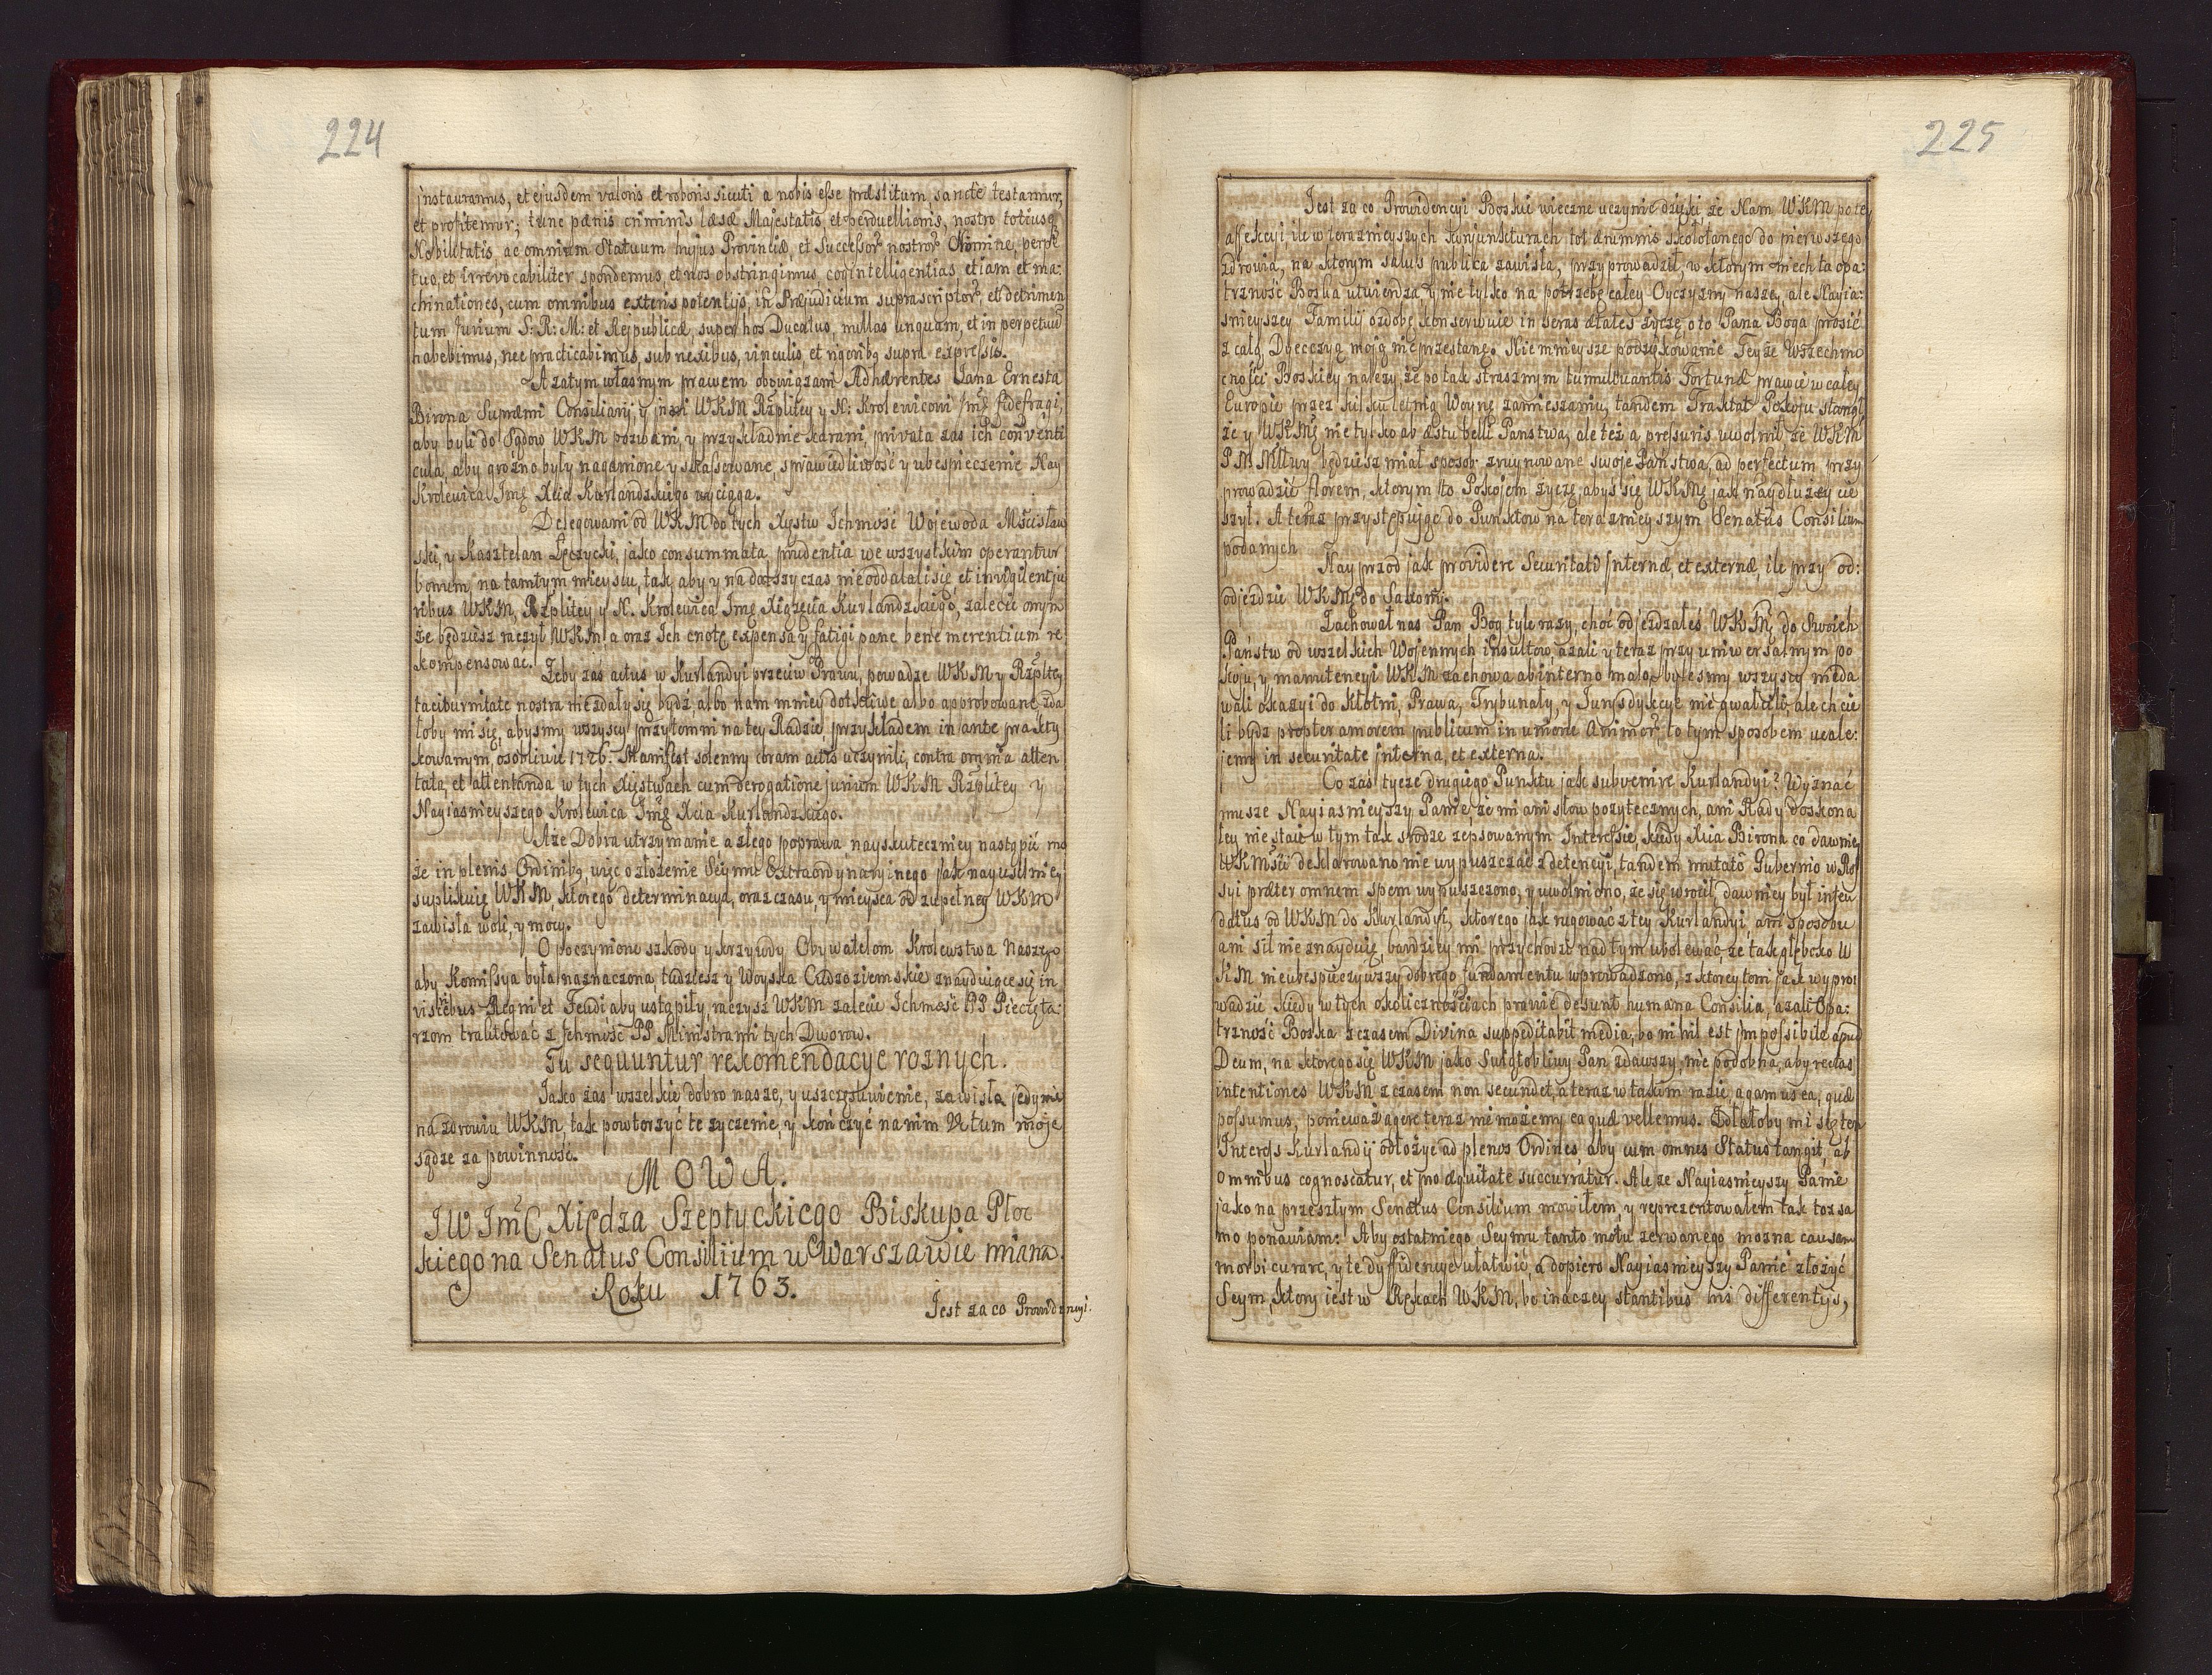 224
instauramus, et ejusdem valoris et roboris sicuti a nobis esse præstitum, sancte testamur,
et profitemur, tunc pænis criminis læsæ Majestatis et perduellionis, nostro totiusq
Nobilitatis, ac omnium Statuum hujus Provinciæ, et Successor nostror Nomine, perpe
tuo, et irrevocabiliter spondemus, et nos obstringimus, cointelligentias etiam et ma:
chinationes, cum omnibus exteris potentijs, in Præjudicium suprascriptor, et detrimen
tum Jurium S: R: M: et Reipublicæ, super hos Ducatus, nullas unquam, et in perpetuu
habebimus, nec practicabimus, sub nexibus, vinculis, et rigoribq supra expressis.
A zatym własnym prawem obowiązani Adhærentes Jana Ernesta
Birona Supremi Consiliarij, y inni WKM Rzplitey y N: Krolewicowi Jmę fidefragi,
aby byli do Sądow WKM pozwani, y przykładnie karani, privata zas ich conventi
cula, aby grozno były naganione y skassowane, sprawiedliwość y ubespieczenie Nay
Krolewica Jmę Xcia Kurlandzkiego wyciąga.
Delegowani od WKM do tych Xystw Ichmość Wojewoda Mścisław
ski, y Kasztelan Łęczycki, jako consummata prudentia we wszystkim operantur
bonum, na tamtym mieyscu, tak, aby y na dalszy czas nie oddalali się, et invigilent ju
ribus WKM, Rzplitey y N. Krolewica Jmę Xiążęcia Kurlandzkiego, zalecić onym
że będziesz raczył WKM, a oraz Ich cnotę expensa y fatigi pane bene merentium re
kompensować.
Żeby zaś actus w Kurlandyi przeciw Prawu, powadze WKM y Rzplte,
taciturnitate nostra nie zdały się bydź, albo nam mniey dotkliwe albo approbowane, zda
łoby mi się, abysmy wszyscy przytomni na tey Radzie, przykładem in ante prakty
kowanym, osobliwie 1726. Manifest solenny coram actis uczynili, contra omnia atten
tata, et attentanda w tych Xięstwach cum derogatione jurium WKM Rzplitey y
Nayiasnieyszego Krolewica Jmę Xcia Kurlandzkiego.
Aże Dobra utrzymanie a złego poprawa, nayskuteczniey nastąpić mo
że in plenis Ordinibq, więc o złożenie Seymu Extraordynaryinego jak nayusilniey
suplikuię WKM, ktorego determinacya, oraz czasu, y mieysca od zupełney WKM
zawisła woli, y mocy.
O poczynione szkody y krzywdy Obywatelom Krolewstwa Naszego
aby Komissya była naznaczona, tudziesz y Woyska Cudzoziemskie znayduiące się in
visceribus Regni et Feudi, aby ustąpiły, raczysz WKM zalecić Ichmość PP Pieczęta:
rzom traktować z Jchmość PP Ministrami tych Dworow.
Tu sequuntur rekomendacye roznych.
Jako zaś wszelkie dobro nasze, y uszczęsliwienie, zawisła jedynie
na zdrowiu WKM, tak powtorzyć te zyczenie, y kończyć na nim Votum moje
sądze za powinność.
MOWA.
JW JmC Xiędza Szeptyckiego Biskupa Płoc
kiego na Senatus Consilium w Warszawie miana
Roku 1763.
Jest za co Prowidencyi.
225
Jest za co Prowidencyi Boskie wieczne uczynić dzięki, że Nam WKM po te
affekcyi ile w teraznieyszych konjunkturach tot ærumnis skołotanego do pierwszego
zdrowia, na ktorym salus publica zawisła, przyprowadził, w ktorym niech ta opa:
trzność Boska utwierdza y nie tylko na potrzebę całey Oyczyzny naszey, ale Nayia:
snieyszey Familij ozdobę konserwuie in seras ætates życzę, o to Pana Boga prosić
z całą Dyeczyą moją nie przestanę. Niemnieysze podziękowanie Teyże Wszechmo
cności Boskiey należy, że po tak strasznym tumultuantis Fortunæ prawie w całey
Europie przez kilkuletnią Woynę zamieszaniu, tandem Traktat Pokoju stanął,
że y WKMę nie tylko ab æstu belli Panstwa, ale też a pressuris uwolnił że WKM
P M Mtwy będziesz miał sposob zruynowane swoje Państwa, ad perfectum przy
prowadzić florem, ktorym to Pokojem życzę, abyś się WKMę jak naydłużey cie
szył. A teraz przystępując do Punktow na teraznieyszym Senatus Consilium
podanych
Nay przod jak providere Securitati Internæ, et externæ, ile przy od:
odjezdzie WKMę do Saxonij.
Zachował nas Pan Bog tyle razy, choć odjezdzałeś WKMę do Swoich
Państw od wszelkich Wojennych insultow, azali y teraz przy uniwersalnym po
koju, y manutencyi WKM zachowa ab interno malo, bylesmy wszyscy nieda
wali okazyi do Kłotni, Prawa, Trybunały, y Jurysdykcye nie gwałcili, ale chcie
li bydz propter amorem publicum in unione Animor, to tym sposobem ucale:
jemy in securitate interna, et externa.
Co zaś tycze drugiego Punktu jak subvenire Kurlandyi? Wyznać
musze Nayiasnieyszy Panie, że mi ani słow pozytecznych, ani Rady doskona
łey nie staie w tym tak srodze zepsowanym Interessie, kiedy Xcia Birona co dawniey
WKMści deklarowano nie wypuszczać z detencyi, tandem mutato Gubernio w Ro
syi præter omnem spem wypuszczono, y uwolniono, że się wrocił, dawniey był infeu
datus od WKM do Kurlandyi, ktorego jak rugować z tey Kurlandyi, ani sposobu
ani sił nie znayduję, bardziey mi przychodzi nad tym ubolewać, że tak głęboko W
KM nieubespieczywszy dobrego fundamentu wprowadzono, z ktorey toni jak wypro
wadzić kiedy w tych okolicznościach prawie desunt humana Consilia, azali Opa:
trzność Boska z czasem Divina suppeditabit media, bo nihil est impossibile apud
Deum, na ktorego się WKM jako Swiątobliwy Pan zdawszy, nie podobna, aby rectas
intentiones WKM z czasem non secundet, a teraz w takim razie, agamus ea, quæ
possumus, ponieważ agere teraz nie możemy ea quæ vellemus. Zdałoby mi się ten
Interess Kurlandij odłożyć ad plenos Ordines, aby cum omnes Status tangit, ab
omnibus cognoscatur, et pro æquitate succurratur. Ale ze Nayiasnieyszy Panie
jako na przeszłym Senatus Consilium mowiłem, y reprezentowałem tak toz sa
mo ponawiam: Aby ostatniego Seymu tanto motu zerwanego mozna causam
morbi curare, y te dyffidencye ułatwić, a dopiero Nayiasnieyszy Panie złożyć
Seym, ktory iest w Rękach WKM, bo inaczey stantibus his differentijs,